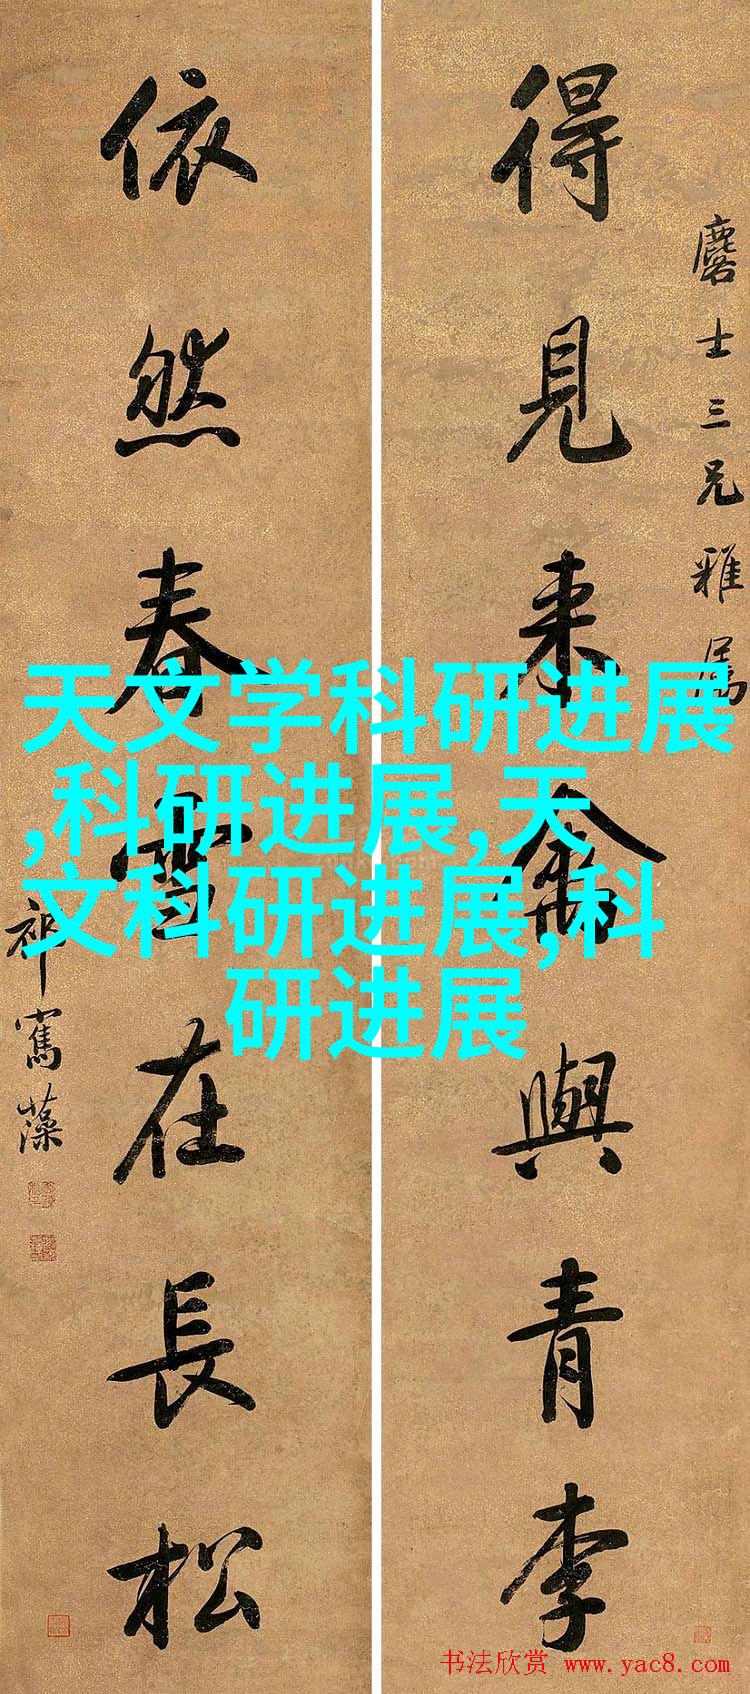 得見來禽與青李
麐士三兄雅属
依然春雪在長松
祁寯藻
天文学科研进展
,科研进展,天
文科研进展,科
研进展
书法欣赏 www.yac8.com